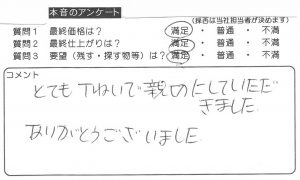 本音のアンケート
(採否は当社担当者が決めます)
質問1 最終価格は? 満足 ・ 普通 ・ 不満
質問2 最終仕上がりは? 満足 ・ 普通 ・ 不満
質問3 要望(残す・探す物等)は? 満足 ・ 普通 ・ 不満
コメント
とてもていねいで親切にしていただ
きました。
ありがとうございました